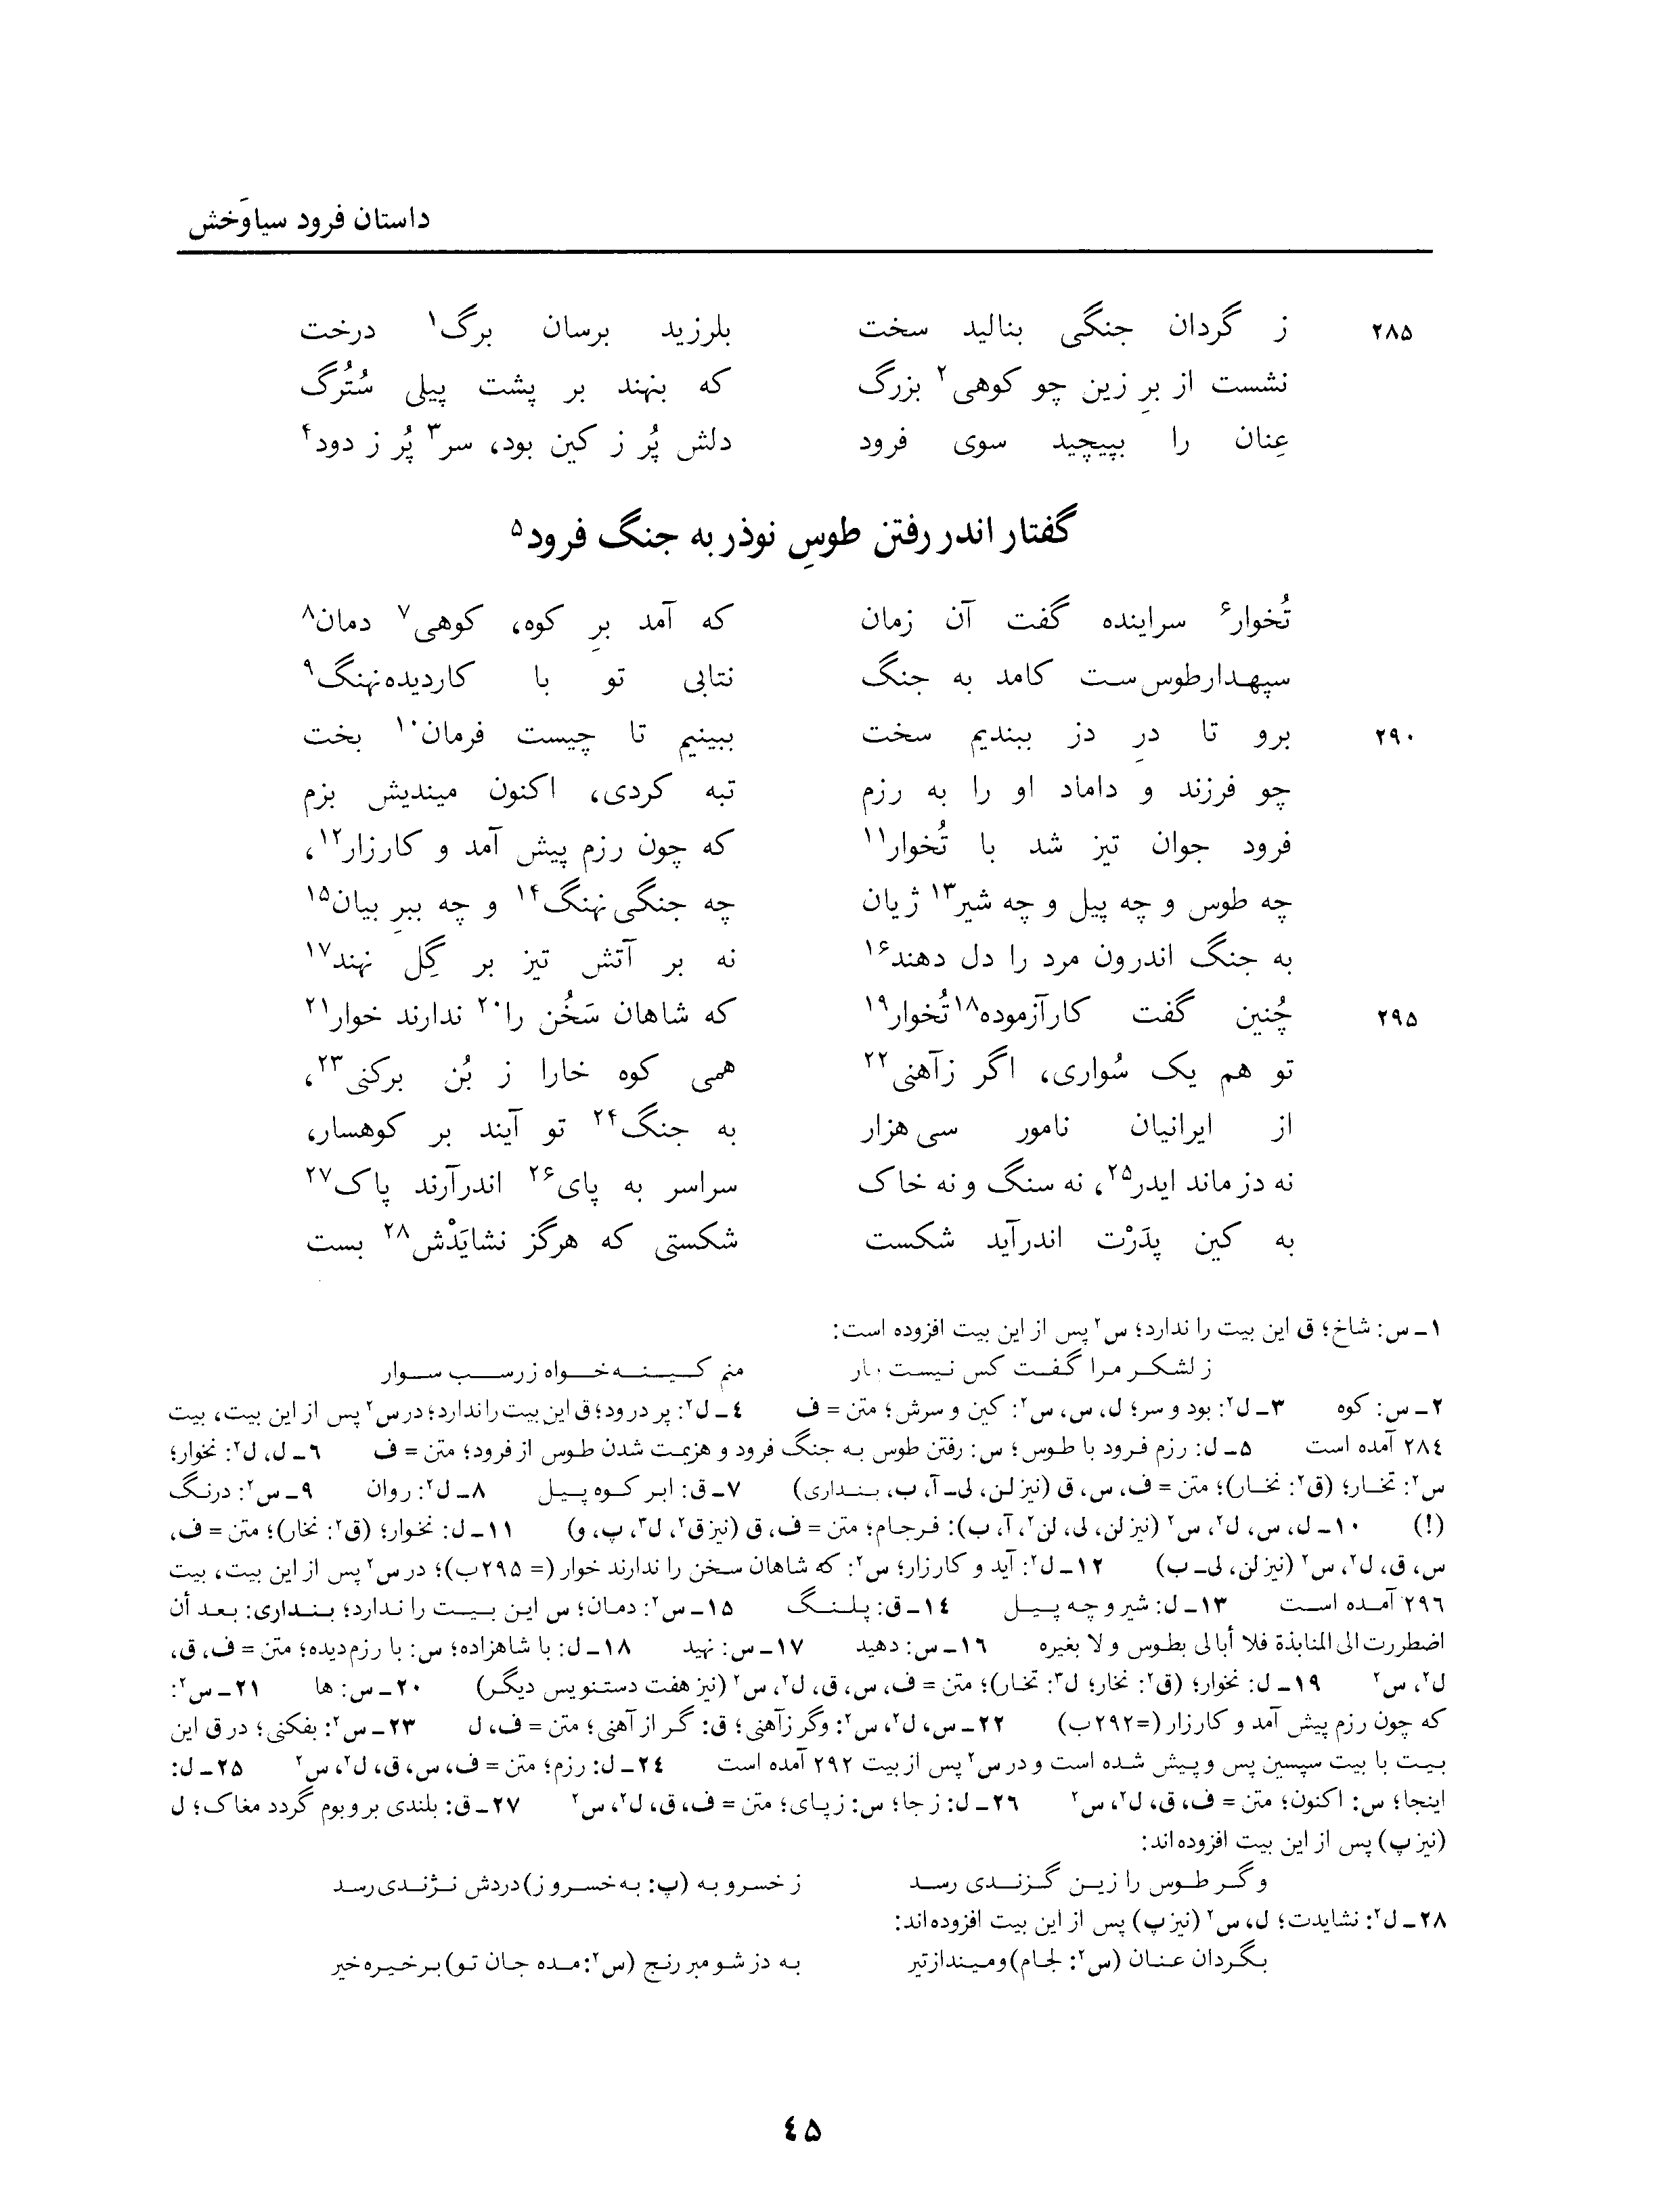 داستان فرود سیاوَخش
۲۸۵ ز گردان جنگی بنالید سخت بلرزید برسان برگ۱ درخت
نشست از برِ زین چو کوهی۲ بزرگ که بنهند بر پشت پیلی سُتُرگ
عِنان را بپیچید سوی فرود دلش پُر ز کین بود، سر۳ پُر ز دود۴
گفتار اندر رفتن طوسِ نوذر به جنگ فرود۵
تُخوار۶ سراینده گفت آن زمان که آمد برِ کوه، کوهی۷ دمان۸
سپهدارطوس‌ست کامد به جنگ نتابی تو با کاردیده‌نهنگ۹
۲۹۰ برو تا درِ دز ببندیم سخت ببینیم تا چیست فرمان۱۰ بخت
چو فرزند و داماد او را به رزم تبه کردی، اکنون میندیش بزم
فرود جوان تیز شد با تُخوار۱۱ که چون رزم پیش آمد و کارزار۱۲،
چه طوس و چه پیل و چه شیر۱۳ ژیان چه جنگی‌نهنگ۱۴ و چه ببرِ بیان۱۵
به جنگ اندرون مرد را دل دهند۱۶ نه بر آتش تیز بر گِل نهند۱۷
۲۹۵ چُنین گفت کارآزموده۱۸ تُخوار۱۹ که شاهان سَخُن را۲۰ ندارند خوار۲۱
تو هم یک سُواری، اگر زآهنی۲۲ همی کوه خارا ز بُن برکنی۲۳،
از ایرانیان نامور سی‌هزار به جنگ۲۴ تو آیند بر کوهسار،
نه دز ماند ایدر۲۵، نه سنگ و نه خاک سراسر به پای۲۶ اندرآرند پاک۲۷
به کین پدَرْت اندرآید شکست شکستی که هرگز نشایَدْش۲۸ بست
۱ـ س: شاخ؛ ق این بیت را ندارد؛ س۲ پس از این بیت افزوده است:
ز لشکر مرا گفت کس نیست یار منم کینه‌خواه زرسب سوار
۲ـ س: کوه ۳ـ ل۲: بود و سر؛ ل، س، س۲: کین و سرش؛ متن = ف ۴ـ ل۲: پر درود؛ ق این بیت را ندارد؛ در س۲ پس از این بیت، بیت
۲۸۴ آمده است ۵ـ ل: رزم فرود با طوس؛ س: رفتن طوس به جنگ فرود و هزیمت شدن طوس از فرود؛ متن = ف ۶ـ ل، ل۲: نخوار؛
س۲: تخار؛ (ق۲: نخار)؛ متن = ف، س، ق (نیز لن، لی ـ آ، ب، بنداری) ۷ـ ق: ابر کوه پیل ۸ـ ل۲: روان ۹ـ س۲: درنگ
(!) ۱۰ـ ل، س، ل۲، س۲ (نیز لن، لی، لن۲، آ، ب): فرجام؛ متن = ف، ق (نیز ق۲، ل۳، پ، و) ۱۱ـ ل: نخوار؛ (ق۲: نخار)؛ متن = ف،
س، ق، ل۲، س۲ (نیز لن، لی ـ ب) ۱۲ـ ل۲: آید و کارزار؛ س۲: که شاهان سخن را ندارند خوار (= ۲۹۵ب)؛ در س۲ پس از این بیت، بیت
۲۹۶ آمده است ۱۳ـ ل: شیر و چه پیل ۱۴ـ ق: پلنگ ۱۵ـ س۲: دمان؛ س این بیت را ندارد؛ بنداری: بعد أن
اضطررت الی المنابذة فلا أبالی بطوس و لا بغیره ۱۶ـ س: دهید ۱۷ـ س: نهید ۱۸ـ ل: با شاهزاده؛ س: با رزم‌دیده؛ متن = ف، ق،
ل۲، س۲ ۱۹ـ ل: نخوار؛ (ق۲: نخار؛ ل۳: تخار)؛ متن = ف، س، ق، ل۲، س۲ (نیز هفت دستنویس دیگر) ۲۰ـ س: ها ۲۱ـ س۲:
که چون رزم پیش آمد و کارزار (=۲۹۲ب) ۲۲ـ س، ل۲، س۲: وگر زآهنی؛ ق: گر از آهنی؛ متن = ف، ل ۲۳ـ س۲: بفکنی؛ در ق این
بیت با بیت سپسین پس و پیش شده است و در س۲ پس از بیت ۲۹۲ آمده است ۲۴ـ ل: رزم؛ متن = ف، س، ق، ل۲، س۲ ۲۵ـ ل:
اینجا؛ س: اکنون؛ متن = ف، ق، ل۲، س۲ ۲۶ـ ل: ز جا؛ س: ز پای؛ متن = ف، ق، ل۲، س۲ ۲۷ـ ق: بلندی بر و بوم گردد مغاک؛ ل
(نیز پ) پس از این بیت افزوده‌اند:
و گر طوس را زین گزندی رسد ز خسرو به (پ: به خسرو ز) دردش نژندی رسد
۲۸ـ ل۲: نشایدت؛ ل، س۲ (نیز پ) پس از این بیت افزوده‌اند:
بگردان عنان (س۲: لجام) و مینداز تیر به دز شو مبر رنج (س۲: مده جان تو) بر خیره خیر
۴۵